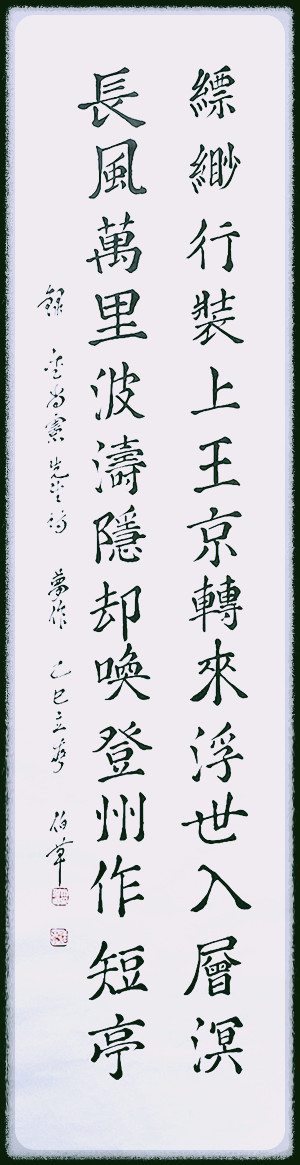 縹緲行裝上王京轉來浮世入層溟
長風萬里波濤隱却喚登州作短亭
錄 金尚憲先生詩 夢作 乙巳立 伯草